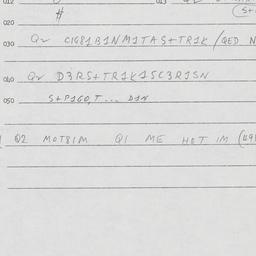 012 013
#
020 (St
030 Qr CIG81B1NM1TAS+TR1K (QED N
040 Qr D3RS+TR1K1SC3R1SN
050 S+P1GO,T... D1N
Q2 MOT81M Q1 ME HOT IM (49